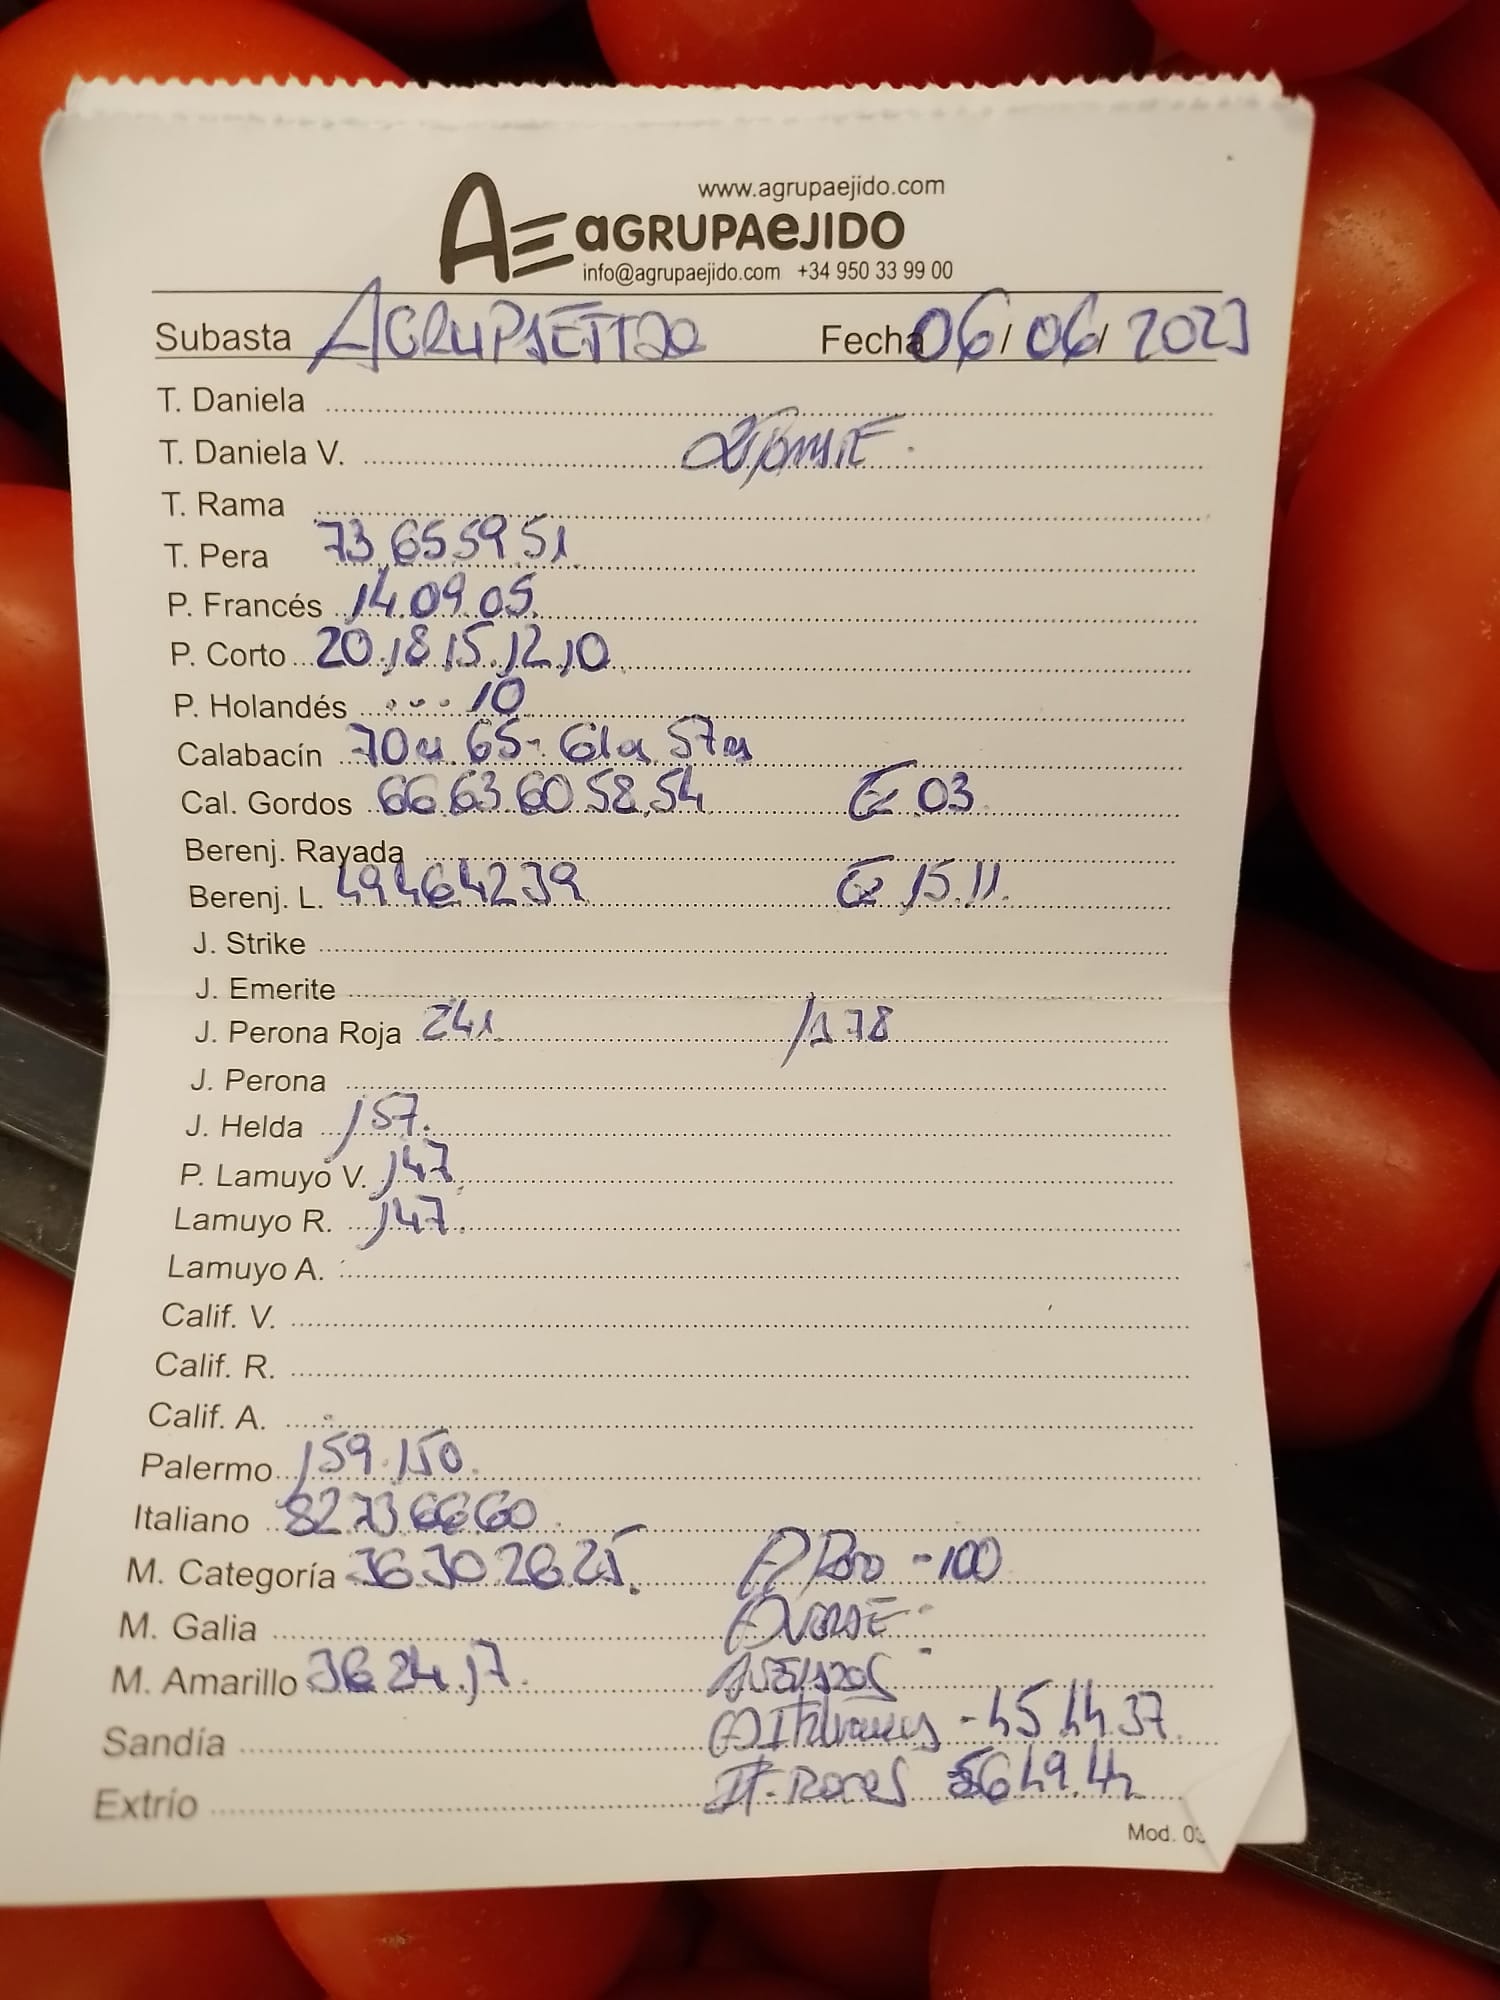 www.agrupaejido.com
AE aGRUPAeJIDO
info@agrupaejido.com +34 950 33 99 00
Subasta AGRUPAEJIDO Fecha 06/06/2023
T. Daniela
T. Daniela V.
T. Rama
T. Pera 73 65 59 51
P. Francés 14 09 05
P. Corto 20 18 15 12 10
P. Holandés ... 10
Calabacín 70 65 61 57
Cal. Gordos 66 63 60 58 54 03
Berenj. Rayada
Berenj. L. 49 46 42 39 15.11.
J. Strike
J. Emerite
J. Perona Roja 241 178
J. Perona
J. Helda 157.
P. Lamuyo V. 147
Lamuyo R. 147.
Lamuyo A.
Calif. V.
Calif. R.
Calif. A.
Palermo 159.150
Italiano 82 73 66 60
M. Categoría 36 30 26 25. -100
M. Galia
M. Amarillo 36 24 17
Sandía Italianos -45 44 37
Extrío It. Rojos 56 49 42
Mod. 03